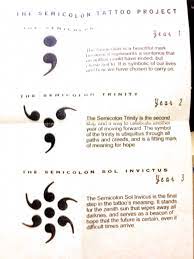 THE SEMICOLON TATTOO PROJECT
Year 1
The Semicolon is a beautiful mark
because it represents a sentence that
an author could have ended, but
chose not to. It is symbolic of our lives
and we have chosen to carry on.
THE SEMICOLON TRINITY
Year 2
The Semicolon Trinity is the second
step, and a way to celebrate another
year of moving forward. The symbol
of the trinity is ubiquitous through all
paths and creeds, and is a fitting mark
of meaning for hope
THE SEMICOLON SOL INVICTUS
Year 3
The Semicolon Sol Invictus is the final
step in the tattoo's meaning. It stands
for the zenith sun that wipes away
darkness, and serves as a beacon of
hope that the future is certain, even if
difficult times arrive.